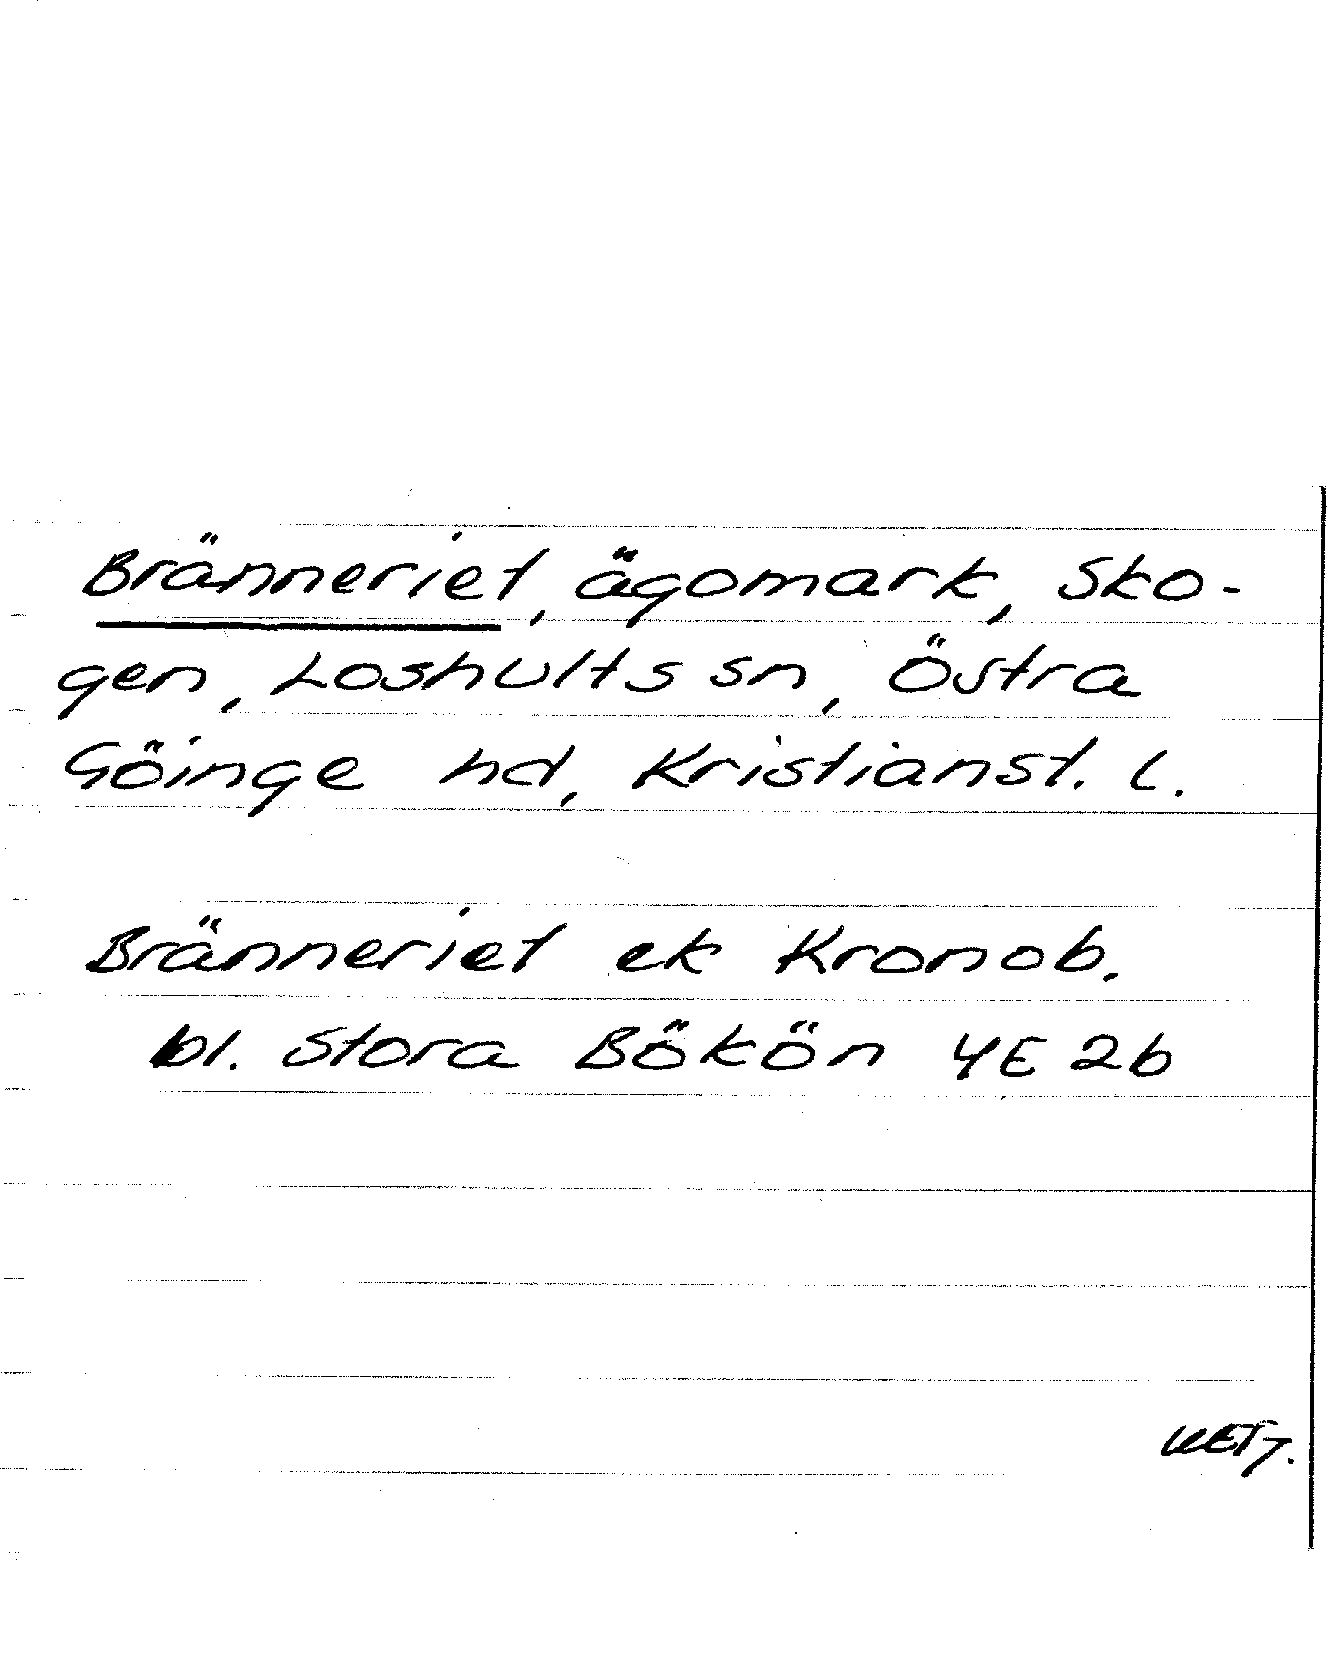 Bränneriet, ägomark, Sko-
gen, Loshults sn, Östra
Göinge hd, Kristianst. l.
Bränneriet ek Kronob.
bl. Stora Bökön 4E 2b